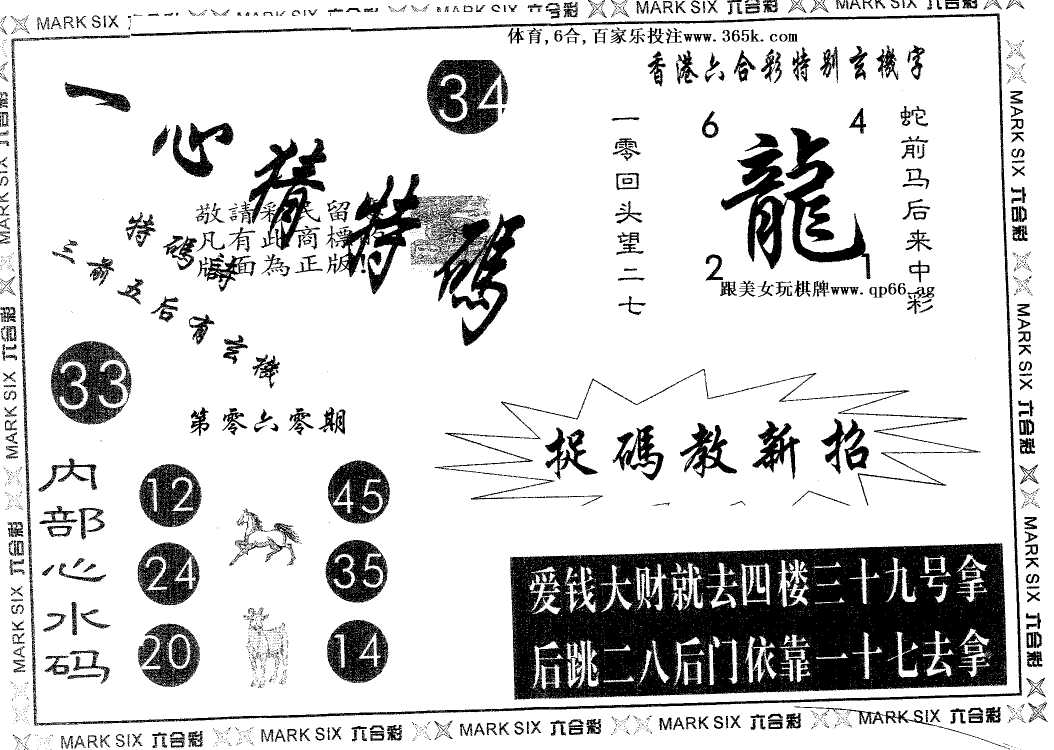 MARK SIX 六合彩 MARK SIX 六合彩 MARK SIX 六合彩 MARK SIX 六合彩 MARK SIX 六合彩
体育,6合,百家乐投注www.365k.com
香港六合彩特别玄機字
一心猜特碼
34
敬請彩民留
凡有此商標的
版面為正版!
特碼詩
三前五后有玄機
一零回头望二七
6 4
龍
2 1
蛇前马后来中彩
跟美女玩棋牌www.qp66.ag
33
第零六零期
捉碼教新招
内部心水码
12 45
24 35
20 14
爱钱大财就去四楼三十九号拿
后跳二八后门依靠一十七去拿
MARK SIX 六合彩 MARK SIX 六合彩 MARK SIX 六合彩
MARK SIX 六合彩 MARK SIX 六合彩 MARK SIX 六合彩
MARK SIX 六合彩 MARK SIX 六合彩 MARK SIX 六合彩 MARK SIX 六合彩 MARK SIX 六合彩